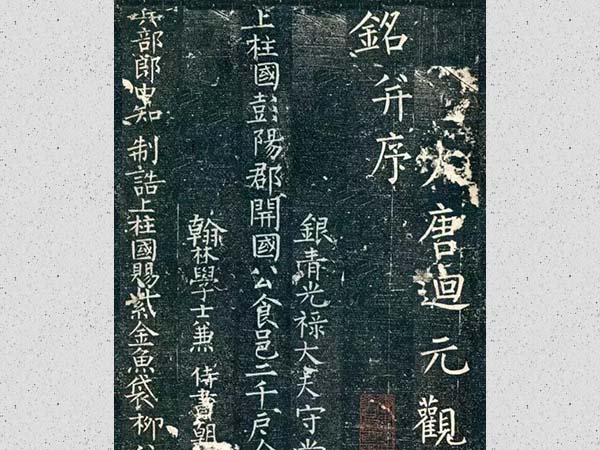 大唐迴元觀
銘并序
銀青光禄大夫守
上柱國彭陽郡開國公食邑二千戶
翰林學士兼侍書朝
兵部郎中知制誥上柱國賜紫金魚袋柳